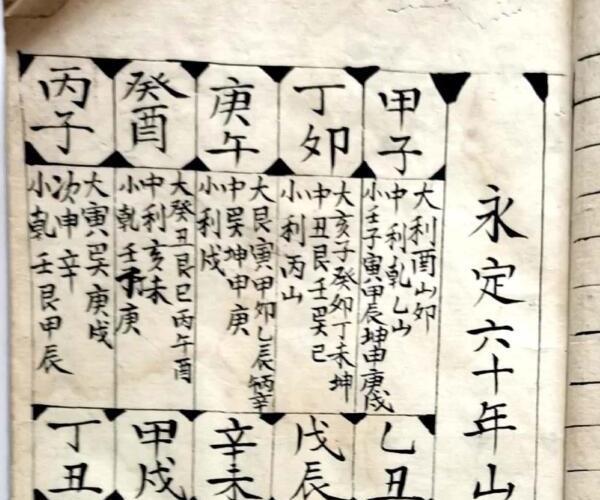 永定六十年山
甲子
大利酉山卯
中利乾乙山
小壬子寅甲辰坤申庚戌
丁卯
大亥子癸卯丁未坤
中丑艮壬巽巳
小利丙山
庚午
大艮寅甲卯乙辰丙辛
中巽坤申庚
小利戌
癸酉
大癸丑艮巳丙午酉
中利亥未
小乾壬子庚
丙子
大寅巽庚戌
次申辛
小乾壬艮甲辰
乙丑
戊辰
辛未
甲戌
丁丑